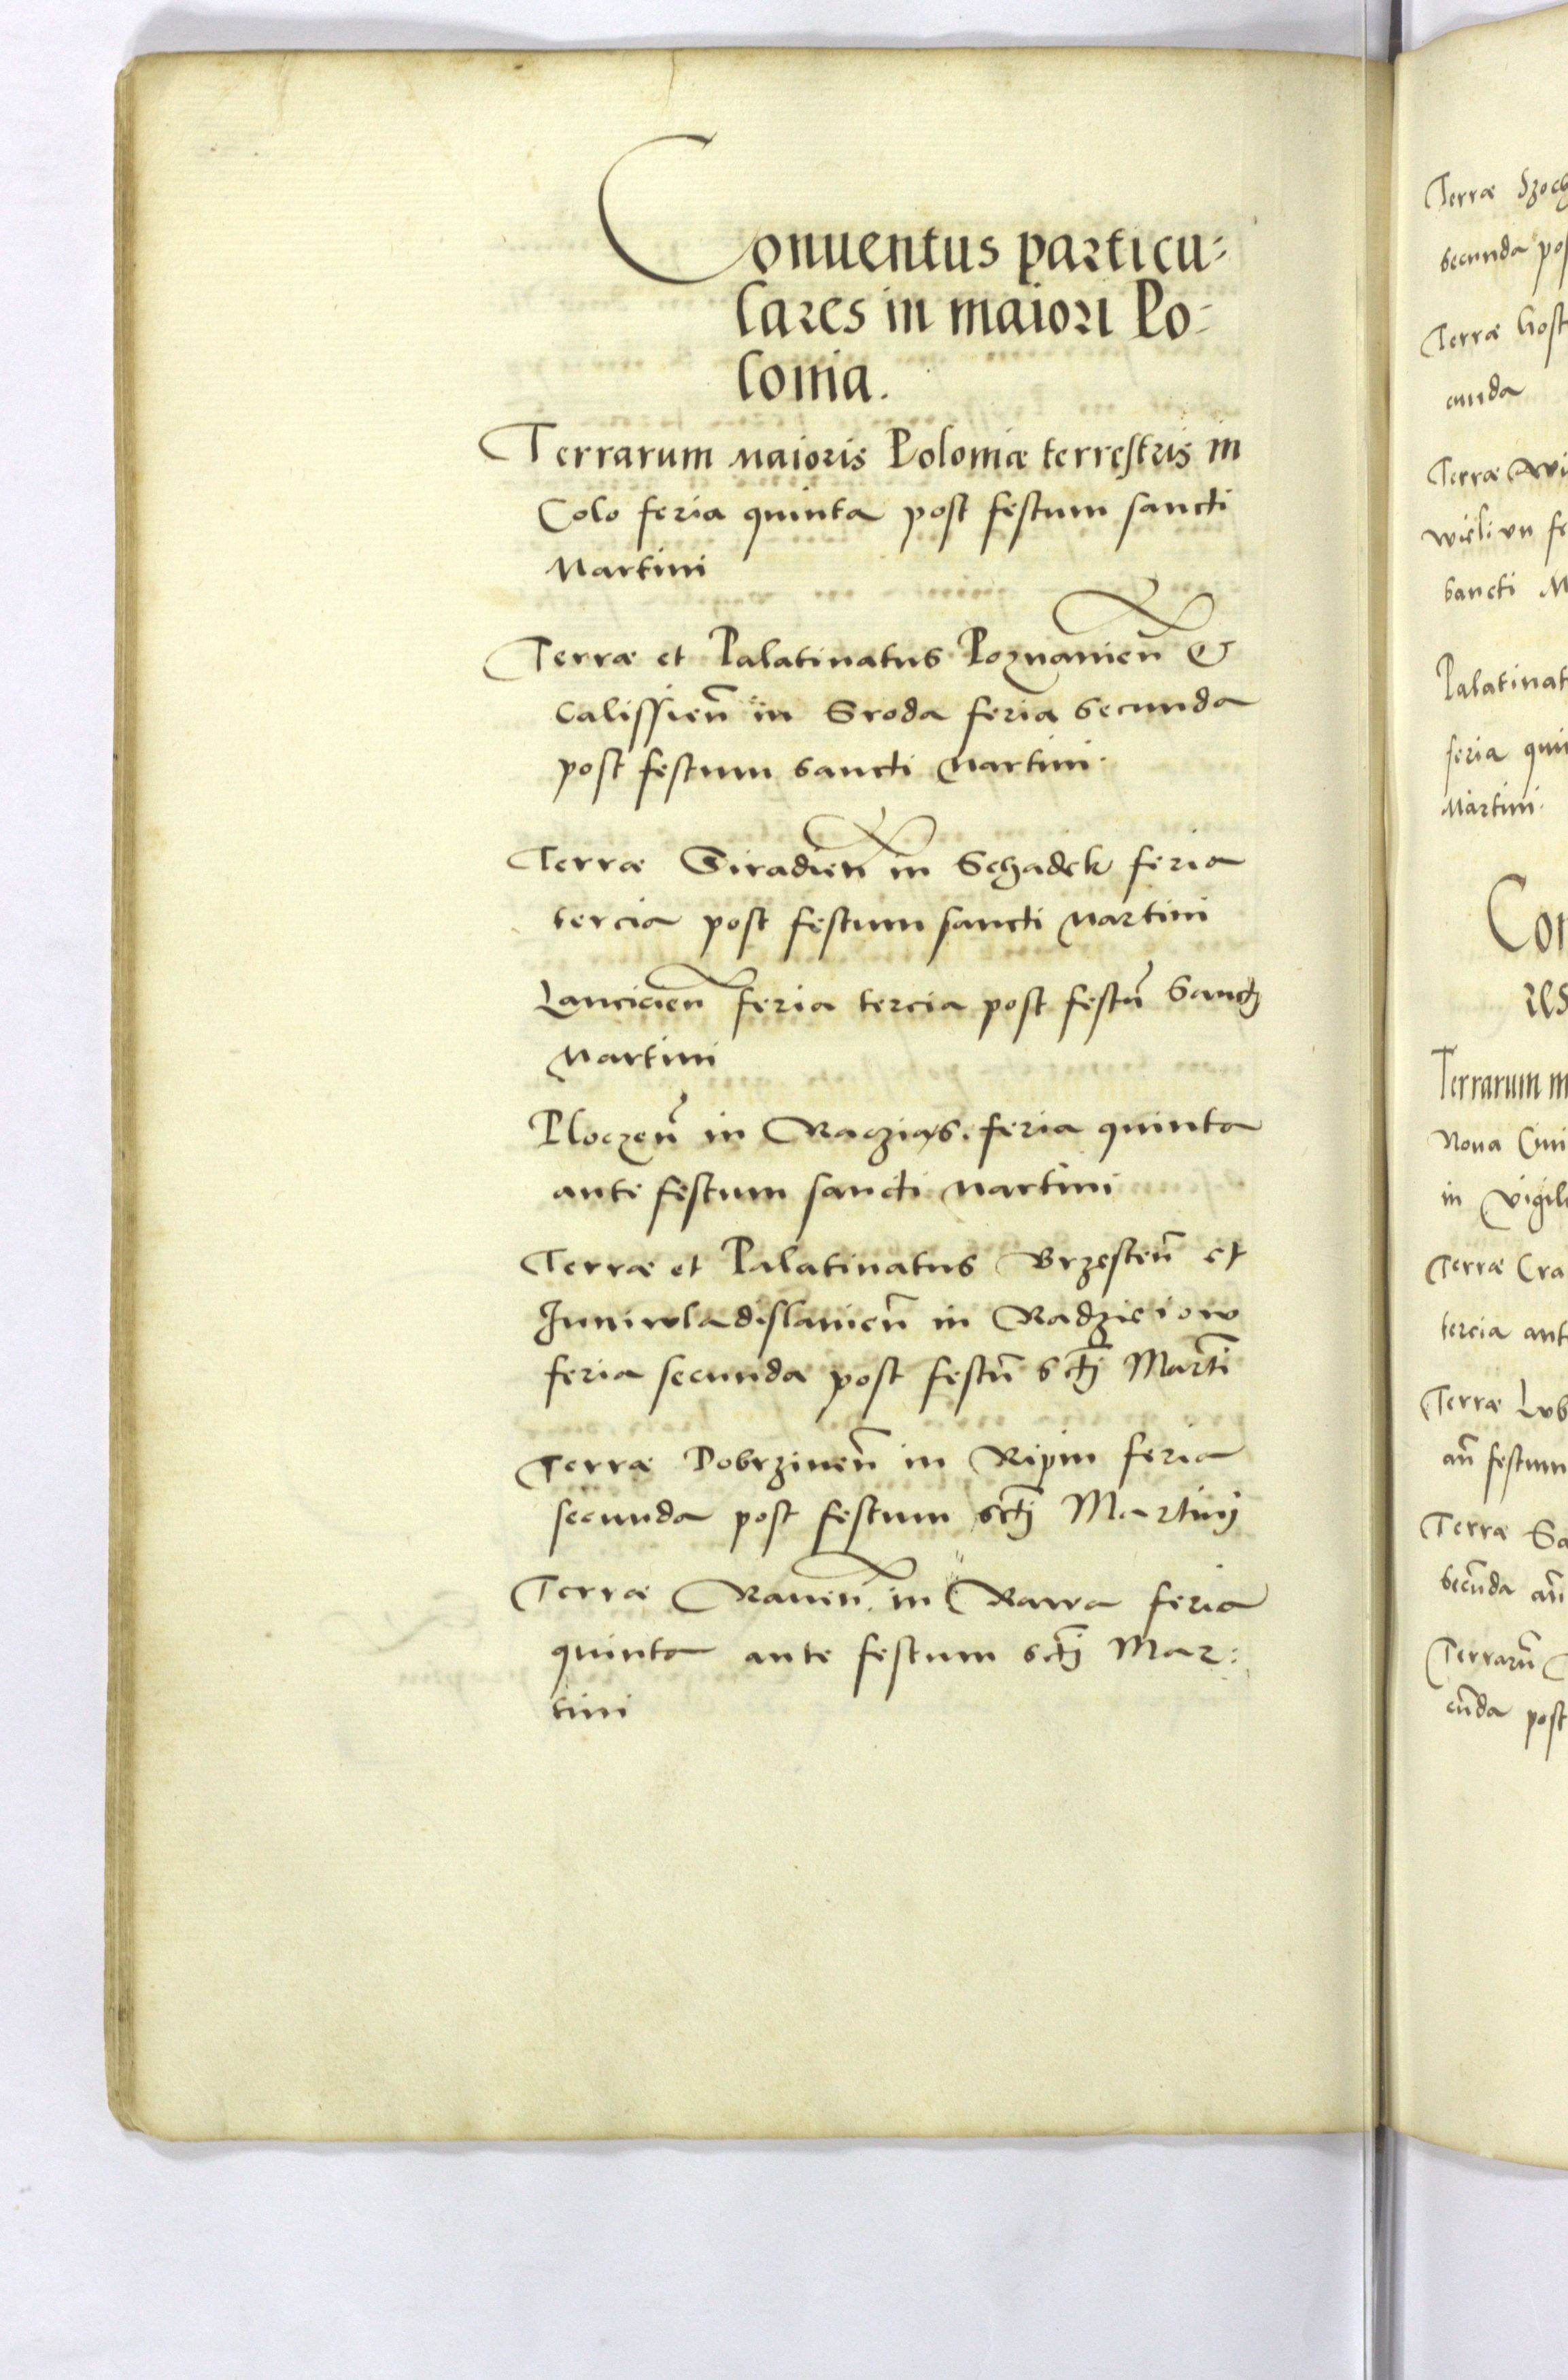 Conuentus particu-
lares in maiori Po-
lonia.
Terrarum Maioris Poloniæ terrestris in
Colo feria quinta post festum sancti
Martini
Terræ et Palatinatus Poznanien̄ &
Calissien̄ in Sroda feria secunda
post festum sancti Martini.
Terræ Siradien̄ in Schadek feria
tercia post festum sancti Martini
Lancicien̄ feria tercia post festū Sanctj
Martini
Ploczen̄ in Racziąs. feria quinta
ante festum sancti Martini
Terræ et Palatinatus Brzesten̄ et
Juniwladislauien̄ in Radzieiow
feria secunda post festū sctj Martī
Terræ Dobrzinen̄ in Ripin feria
secunda post festum sctj Martinj
Terræ Rauen̄. in Rawa feria
quinta ante festum sctj Mar:
tini
Terræ
secunda
Terræ
cunda
Terræ
wielivn
sancti
Palatinat
feria
Martini.
Con
res
Terrarum
Noua
in
Terræ
tercia
Terræ
an̄ festum
Terræ
secūda
Terrarū
cūda post